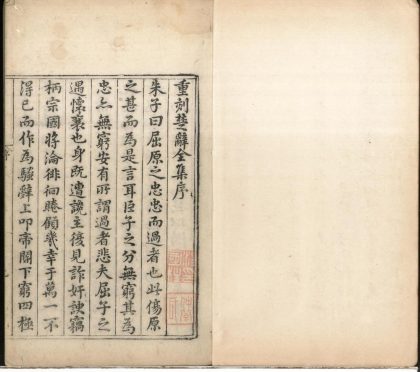 重刻楚辭全集序
朱子曰屈原之忠忠而過者也此傷原
之甚而為是言耳臣子之分無窮其為
忠亦無窮安有所謂過者悲夫屈子之
遇懷襄也身既遭讒主復見詐奸諛竊
柄宗國將淪徘徊睠顧幾幸于萬一不
得已而作為騷辭上叩帝閽下窮四極